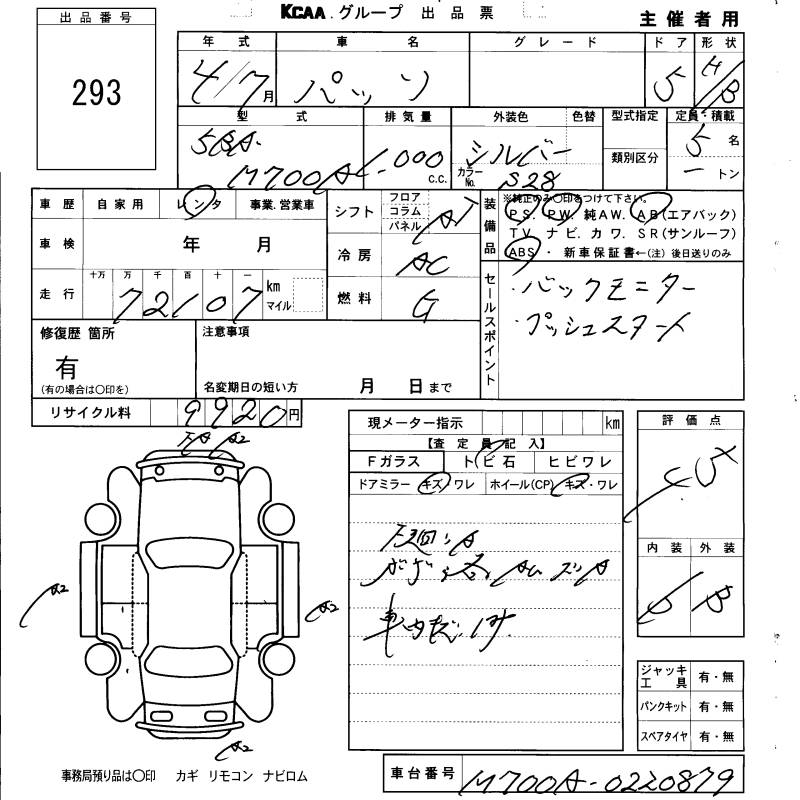 KCAA.グループ 出品票
主催者用
出品番号
293
年式 車名 グレード ドア 形状
4/7月 パッソ 5 H/B
型式 排気量 外装色 色替 型式指定 定員・積載
5BA- M700A 1.000 c.c. シルバー カラーNo. S28 類別区分 5名 ートン
車歴 自家用 レンタ 事業.営業車
シフト フロア コラム パネル AT
装備品 ※純正のみ〇印をつけて下さい。
PS. PW. 純AW. AB(エアバック)
TV. ナビ. カワ. SR(サンルーフ)
ABS・ 新車保証書←(注)後日送りのみ
車検 年 月
冷房 AC
走行 十万 万 千 百 十 一 72107 km マイル
燃料 G
セールスポイント
・バックモニター
・プッシュスタート
修復歴 箇所
有
(有の場合は〇印を)
注意事項
名変期日の短い方 月 日まで
リサイクル料 9920円
現メーター指示 km
【査定員記入】
Fガラス トビ石 ヒビワレ
ドアミラー キズ・ワレ ホイール(CP) キズ・ワレ
下廻りA
車内
評価点
4.5
内装 外装
B B
A2
A2
A2
A2
ジャッキ工具 有・無
パンクキット 有・無
スペアタイヤ 有・無
事務局預り品は〇印 カギ リモコン ナビロム
車台番号 M700A-0220879